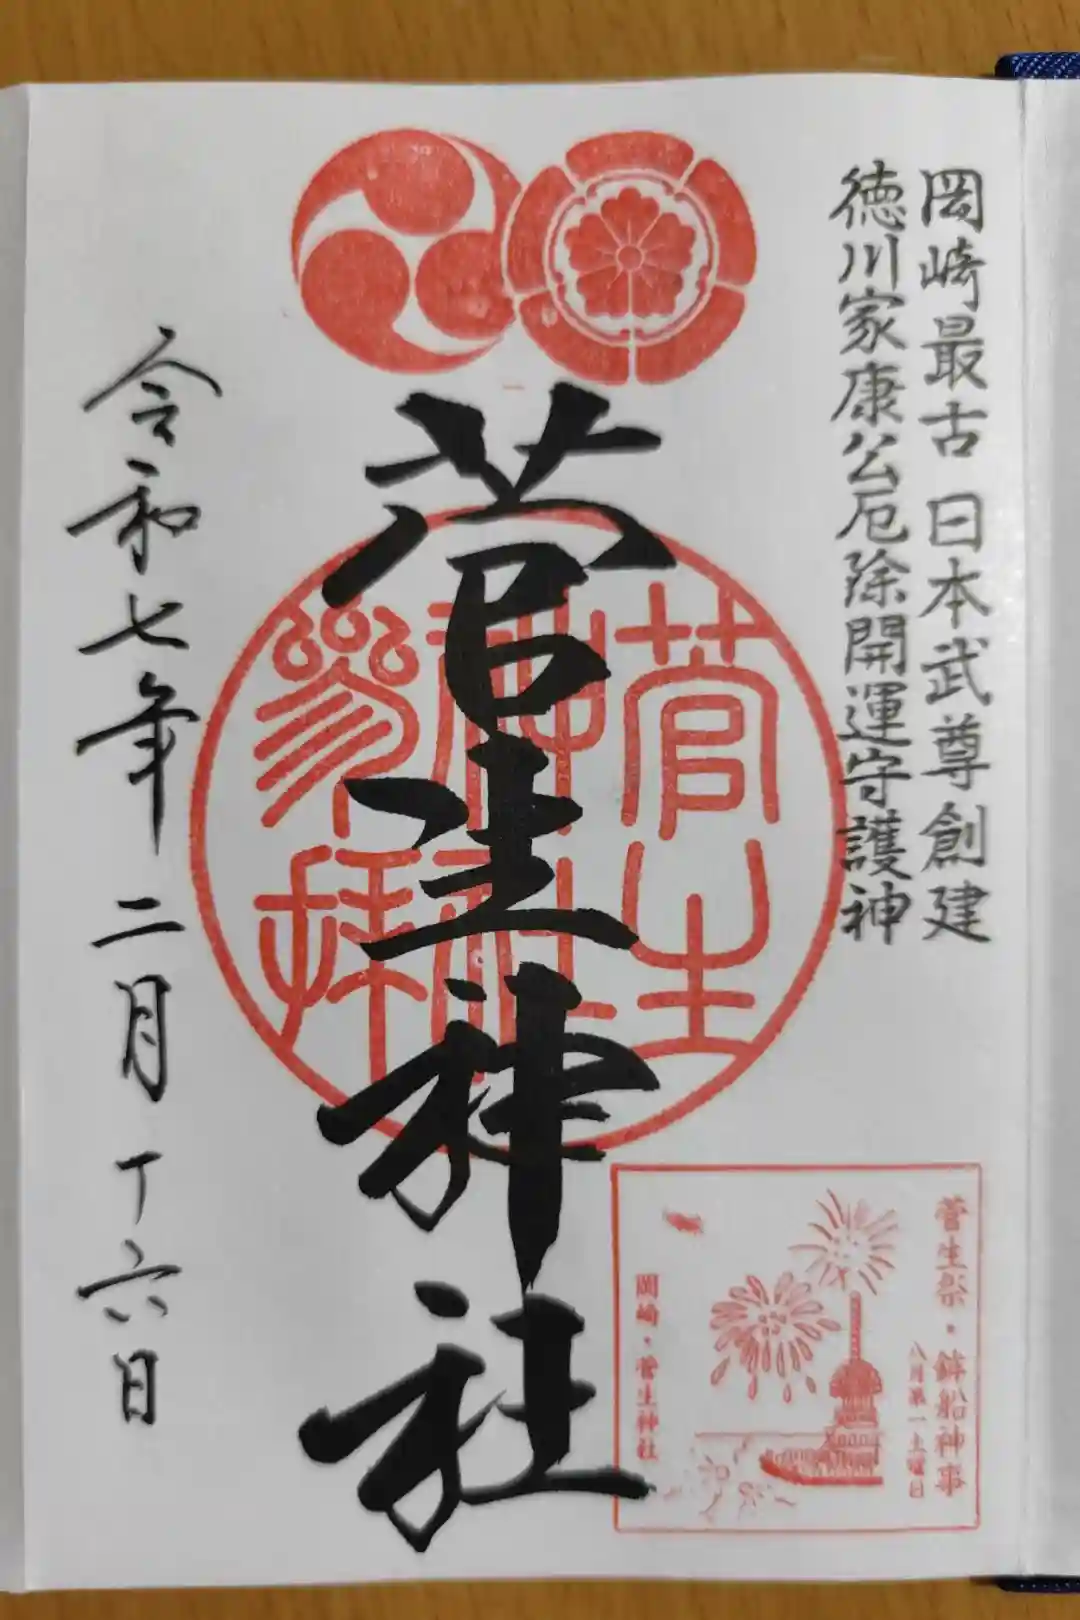 岡崎最古 日本武尊創建
徳川家康公厄除開運守護神
菅生神社
菅生
神社
参拝
令和七年二月十六日
菅生祭・鉾船神事
八月第一土曜日
岡崎・菅生神社